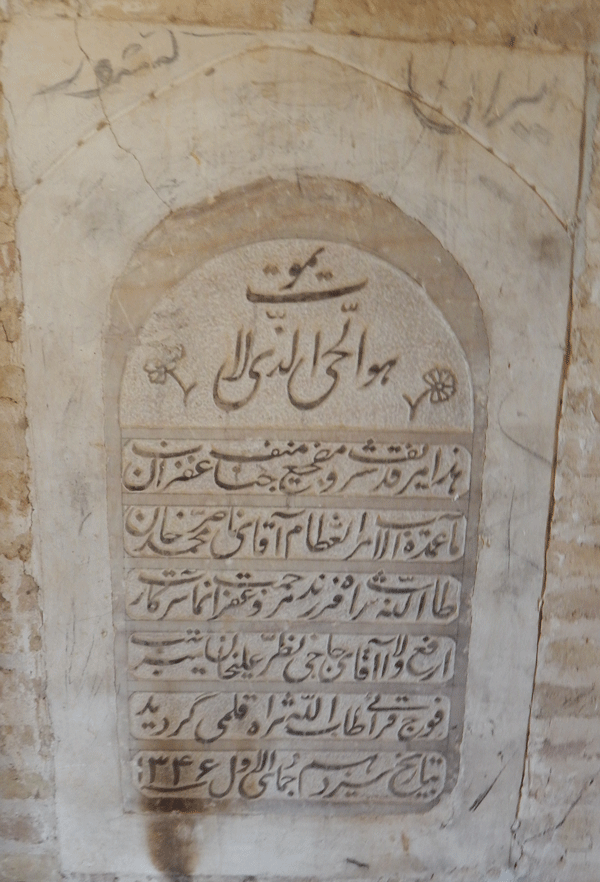 هو الحی الذی لا
یموت
هذا مرقد شریف و مضجع منیف جناب غفران
مآب عمدة الامراء العظام آقای ناصر محمد خان
طاب الله ثراه فرزند مرحمت و غفرانمآب سرکار
ارفع والا آقای حاجی نظر علیخان نایب سرتیپ
فوج قرائی طاب الله ثراه قلمی گردید
بتاریخ سیزدهم جمادی الاول ۱۳۴۶